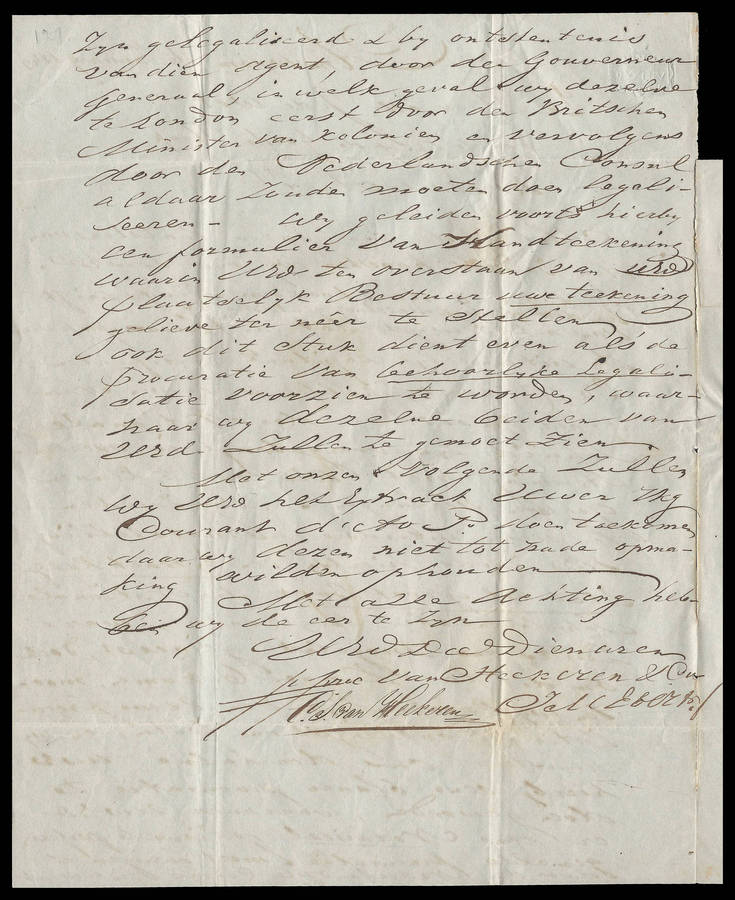 Zyn gelegaliseerd & by ontstentenis
van dien Agent, door den Gouverneur
Generaal, in welk geval wy dezelve
te London eerst door den Britschen
Minister van Kolonien en vervolgens
door den Nederlandschen Consul
aldaar zouden moeten doen legali-
seeren - Wy geleiden voorts hierby
een formulier van Handteekening
waarin UEd. ten overstaan van
plaatselyk Bestuur uwe teekening
gelieve ter néer te stellen
ook dit Stuk dient even als de
procuratie van behoorlyke Legali-
satie voorzien te worden, waar-
naar wy dezelve beiden van
UEd. zullen te gemoet zien.
Met onzen volgende zullen
wy UEd. het Extrack Uwer Rkg
Courant d'cto Po. doen toekomen
daar wy dezen niet tot hade opma-
king wilden ophouden
Met alle Achting heb-
ben wy de eer te zyn
UEd DW Dienaren
van Heekeren & Co
van Heekeren